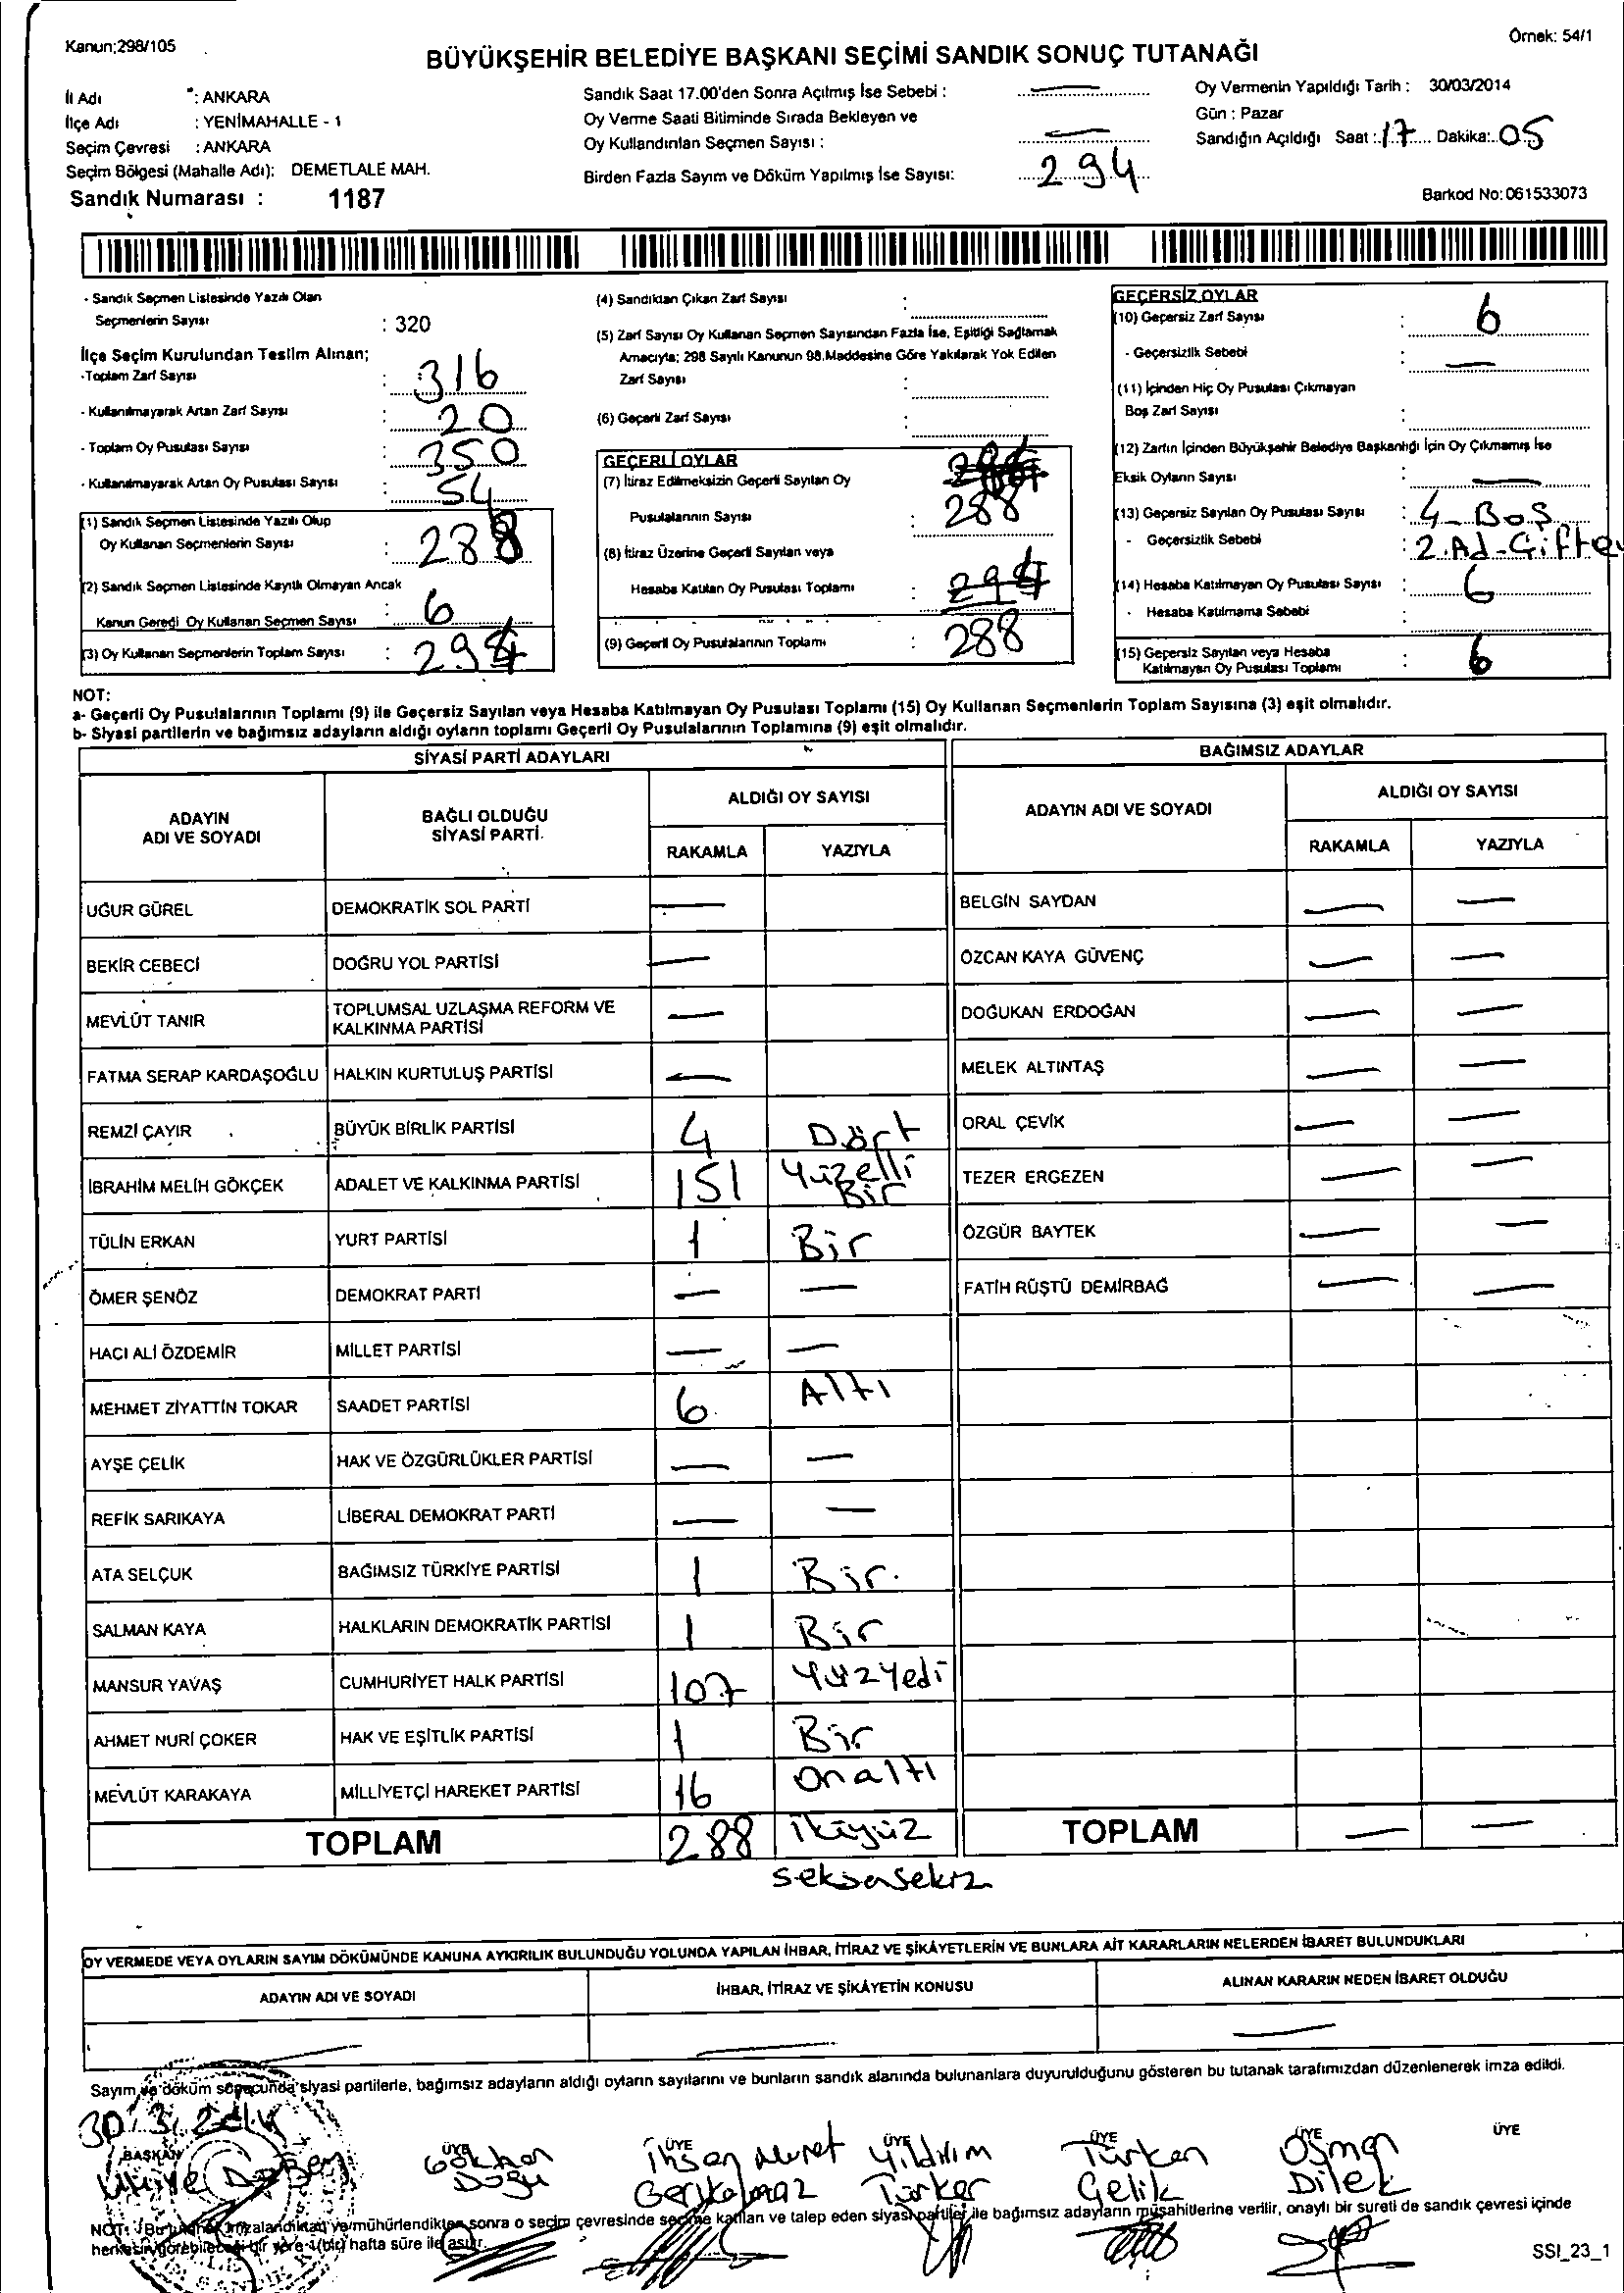 Kanun:298/105
Örnek: 54/1
BÜYÜKŞEHİR BELEDİYE BAŞKANI SEÇİMİ SANDIK SONUÇ TUTANAĞI
İl Adı : ANKARA
İlçe Adı : YENİMAHALLE - 1
Seçim Çevresi : ANKARA
Seçim Bölgesi (Mahalle Adı): DEMETLALE MAH.
Sandık Numarası : 1187
Sandık Saat 17.00'den Sonra Açılmış İse Sebebi : —
Oy Verme Saati Bitiminde Sırada Bekleyen ve
Oy Kullandırılan Seçmen Sayısı : —
Birden Fazla Sayım ve Döküm Yapılmış İse Sayısı: 294
Oy Vermenin Yapıldığı Tarih : 30/03/2014
Gün : Pazar
Sandığın Açıldığı Saat : 17 Dakika: 05
Barkod No: 061533073
- Sandık Seçmen Listesinde Yazılı Olan
Seçmenlerin Sayısı : 320
İlçe Seçim Kurulundan Teslim Alınan;
-Toplam Zarf Sayısı : 316
- Kullanılmayarak Artan Zarf Sayısı : 20
- Toplam Oy Pusulası Sayısı : 350
- Kullanılmayarak Artan Oy Pusulası Sayısı : 54
(1) Sandık Seçmen Listesinde Yazılı Olup
Oy Kullanan Seçmenlerin Sayısı : 288
(2) Sandık Seçmen Listesinde Kayıtlı Olmayan Ancak
Kanun Gereği Oy Kullanan Seçmen Sayısı : 6
(3) Oy Kullanan Seçmenlerin Toplam Sayısı : 294
(4) Sandıktan Çıkan Zarf Sayısı :
(5) Zarf Sayısı Oy Kullanan Seçmen Sayısından Fazla İse, Eşitliği Sağlamak
Amacıyla; 298 Sayılı Kanunun 98.Maddesine Göre Yakılarak Yok Edilen
Zarf Sayısı :
(6) Geçerli Zarf Sayısı :
GEÇERLİ OYLAR
(7) İtiraz Edilmeksizin Geçerli Sayılan Oy
Pusulalarının Sayısı : 288
(8) İtiraz Üzerine Geçerli Sayılan veya
Hesaba Katılan Oy Pusulası Toplamı : 294
(9) Geçerli Oy Pusulalarının Toplamı : 288
GEÇERSİZ OYLAR
(10) Geçersiz Zarf Sayısı : 6
- Geçersizlik Sebebi : —
(11) İçinden Hiç Oy Pusulası Çıkmayan
Boş Zarf Sayısı :
(12) Zarfın İçinden Büyükşehir Belediye Başkanlığı İçin Oy Çıkmamış İse
Eksik Oyların Sayısı : —
(13) Geçersiz Sayılan Oy Pusulası Sayısı : 4- Boş
- Geçersizlik Sebebi : 2.Ad-Çifte
(14) Hesaba Katılmayan Oy Pusulası Sayısı : 6
- Hesaba Katılmama Sebebi :
(15) Geçersiz Sayılan veya Hesaba
Katılmayan Oy Pusulası Toplamı : 6
NOT:
a- Geçerli Oy Pusulalarının Toplamı (9) ile Geçersiz Sayılan veya Hesaba Katılmayan Oy Pusulası Toplamı (15) Oy Kullanan Seçmenlerin Toplam Sayısına (3) eşit olmalıdır.
b- Siyasi partilerin ve bağımsız adayların aldığı oyların toplamı Geçerli Oy Pusulalarının Toplamına (9) eşit olmalıdır.
SİYASİ PARTİ ADAYLARI
ADAYIN ADI VE SOYADI
BAĞLI OLDUĞU SİYASİ PARTİ
ALDIĞI OY SAYISI
RAKAMLA YAZIYLA
UĞUR GÜREL DEMOKRATİK SOL PARTİ —
BEKİR CEBECİ DOĞRU YOL PARTİSİ —
MEVLÜT TANIR TOPLUMSAL UZLAŞMA REFORM VE KALKINMA PARTİSİ —
FATMA SERAP KARDAŞOĞLU HALKIN KURTULUŞ PARTİSİ —
REMZİ ÇAYIR BÜYÜK BİRLİK PARTİSİ 4 Dört
İBRAHİM MELİH GÖKÇEK ADALET VE KALKINMA PARTİSİ 151 Yüzelli Bir
TÜLİN ERKAN YURT PARTİSİ 1 Bir
ÖMER ŞENÖZ DEMOKRAT PARTİ — —
HACI ALİ ÖZDEMİR MİLLET PARTİSİ — —
MEHMET ZİYATTİN TOKAR SAADET PARTİSİ 6 Altı
AYŞE ÇELİK HAK VE ÖZGÜRLÜKLER PARTİSİ — —
REFİK SARIKAYA LİBERAL DEMOKRAT PARTİ — —
ATA SELÇUK BAĞIMSIZ TÜRKİYE PARTİSİ 1 Bir
SALMAN KAYA HALKLARIN DEMOKRATİK PARTİSİ 1 Bir
MANSUR YAVAŞ CUMHURİYET HALK PARTİSİ 107 Yüzyedi
AHMET NURİ ÇOKER HAK VE EŞİTLİK PARTİSİ 1 Bir
MEVLÜT KARAKAYA MİLLİYETÇİ HAREKET PARTİSİ 16 onaltı
TOPLAM 288 ikiyüz
seksensekiz
BAĞIMSIZ ADAYLAR
ADAYIN ADI VE SOYADI
ALDIĞI OY SAYISI
RAKAMLA YAZIYLA
BELGİN SAYDAN — —
ÖZCAN KAYA GÜVENÇ — —
DOĞUKAN ERDOĞAN — —
MELEK ALTINTAŞ — —
ORAL ÇEVİK — —
TEZER ERGEZEN — —
ÖZGÜR BAYTEK — —
FATİH RÜŞTÜ DEMİRBAĞ — —
TOPLAM — —
OY VERMEDE VEYA OYLARIN SAYIM DÖKÜMÜNDE KANUNA AYKIRILIK BULUNDUĞU YOLUNDA YAPILAN İHBAR, İTİRAZ VE ŞİKÂYETLERİN VE BUNLARA AİT KARARLARIN NELERDEN İBARET BULUNDUKLARI
ADAYIN ADI VE SOYADI
İHBAR, İTİRAZ VE ŞİKÂYETİN KONUSU
ALINAN KARARIN NEDEN İBARET OLDUĞU
— — —
Sayım ve döküm sonucunda siyasi partilerle, bağımsız adayların aldığı oyların sayılarını ve bunların sandık alanında bulunanlara duyurulduğunu gösteren bu tutanak tarafımızdan düzenlenerek imza edildi.
30.3.2014
BAŞKAN ÜYE ÜYE ÜYE ÜYE ÜYE ÜYE
Gökhan Doğu
İhsan Murat
Yıldırım Türker
Türkan Çelik
Osman Dilek
NOT: Bu tutanak imzalandıktan ve mühürlendikten sonra o seçim çevresinde seçime katılan ve talep eden siyasi partiler ile bağımsız adayların müşahitlerine verilir, onaylı bir sureti de sandık çevresi içinde
herkesin görebileceği bir yere 1(bir) hafta süre ile asılır.
SSI_23_1